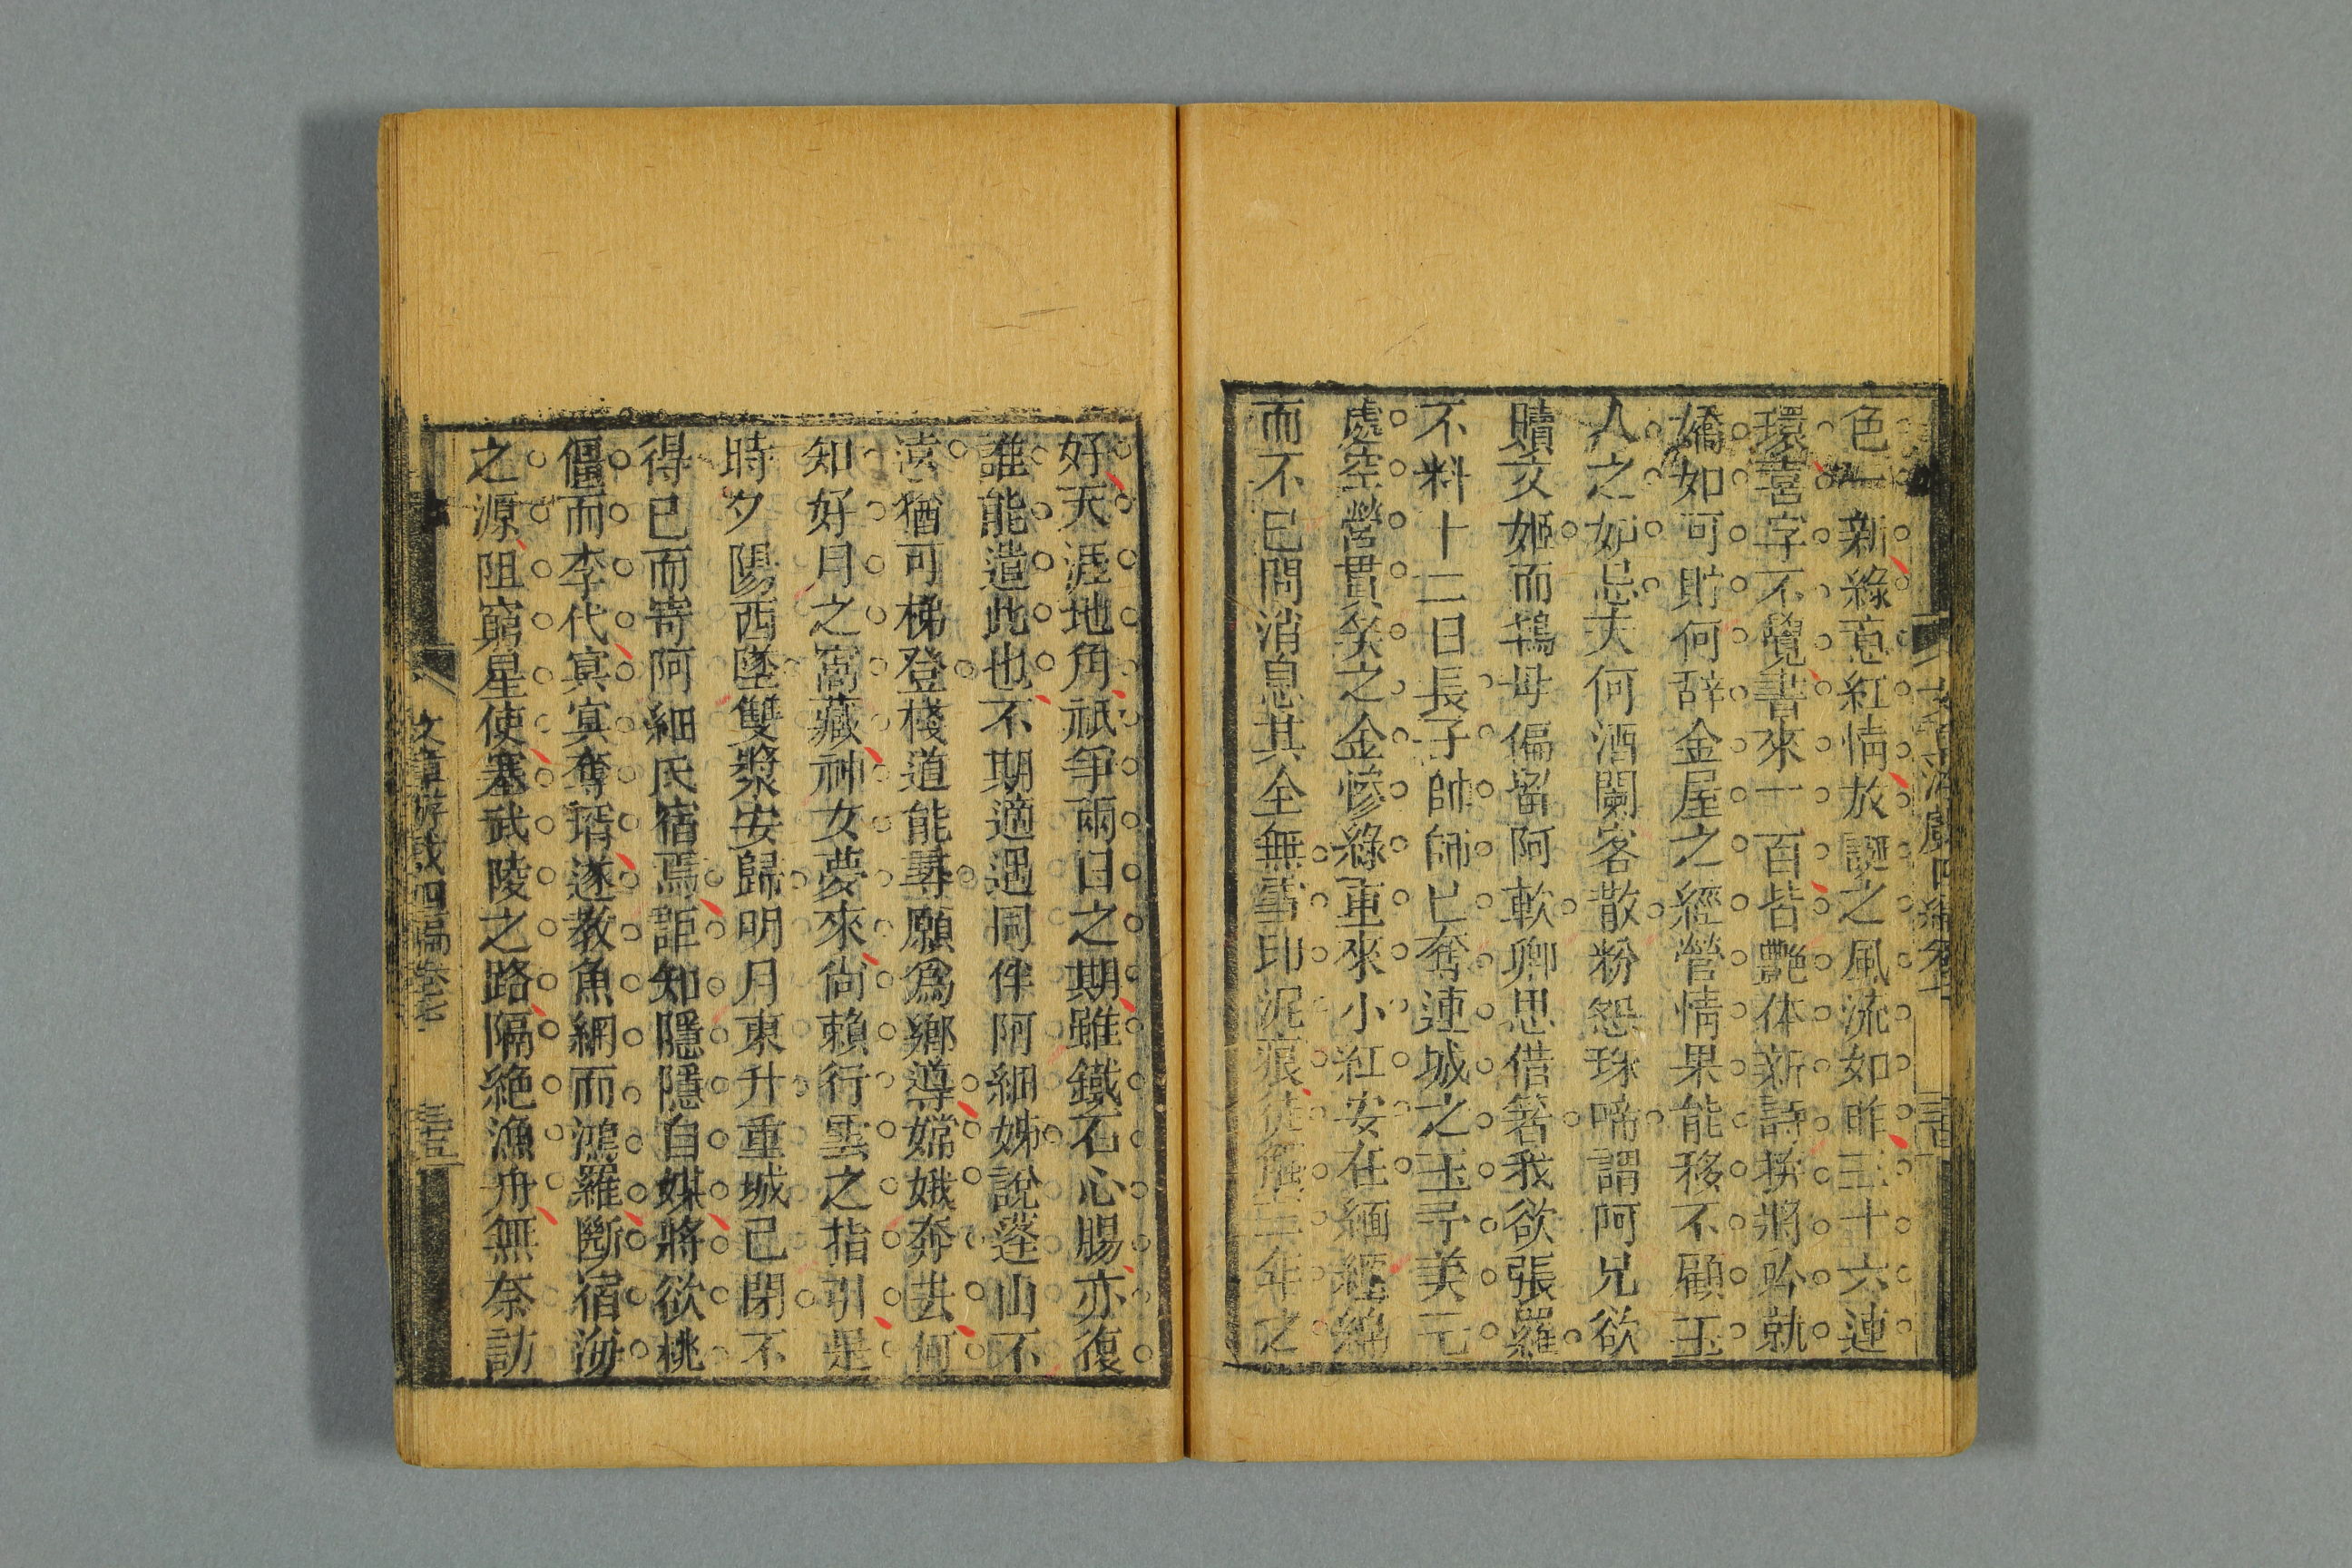 色一新綠意紅情放誕之風流如昨三十六連
環喜字不覺書來一百皆艷体新詩挨將吟就
嬌如可貯何辞金屋之經營情果能移不顧玉
人之妒忌夫何酒闌客散粉怨珠啼謂阿兄欲
贖文姬而鴇母偏留阿軟卿思借箸我欲張羅
不料十二日長子帥師已奪連城之玉尋美元
處空營貫矣之金慘綠重來小紅安在緬經綿
而不已問消息其全無雪印泥痕徒熊三年之
好天涯地角祇爭兩日之期雖鐵石心腸亦復
誰能遣此也不期適遇同伴阿細姊說蓬山不
遠猶可梯登棧道能尋願爲鄉導嫦娥奔去何
知好月之窩藏神女夢來尚賴行雲之指引是
時夕陽西墜雙槳安歸明月東升重城已閉不
得已而寄阿細氏宿焉詎知隱隱自媒將欲桃
僵而李代寘寘奪壻遂教魚網而鴻羅斷宿海
之源阻窮星使塞武陵之路隔絶漁舟無奈訪
文章游戲四編卷七